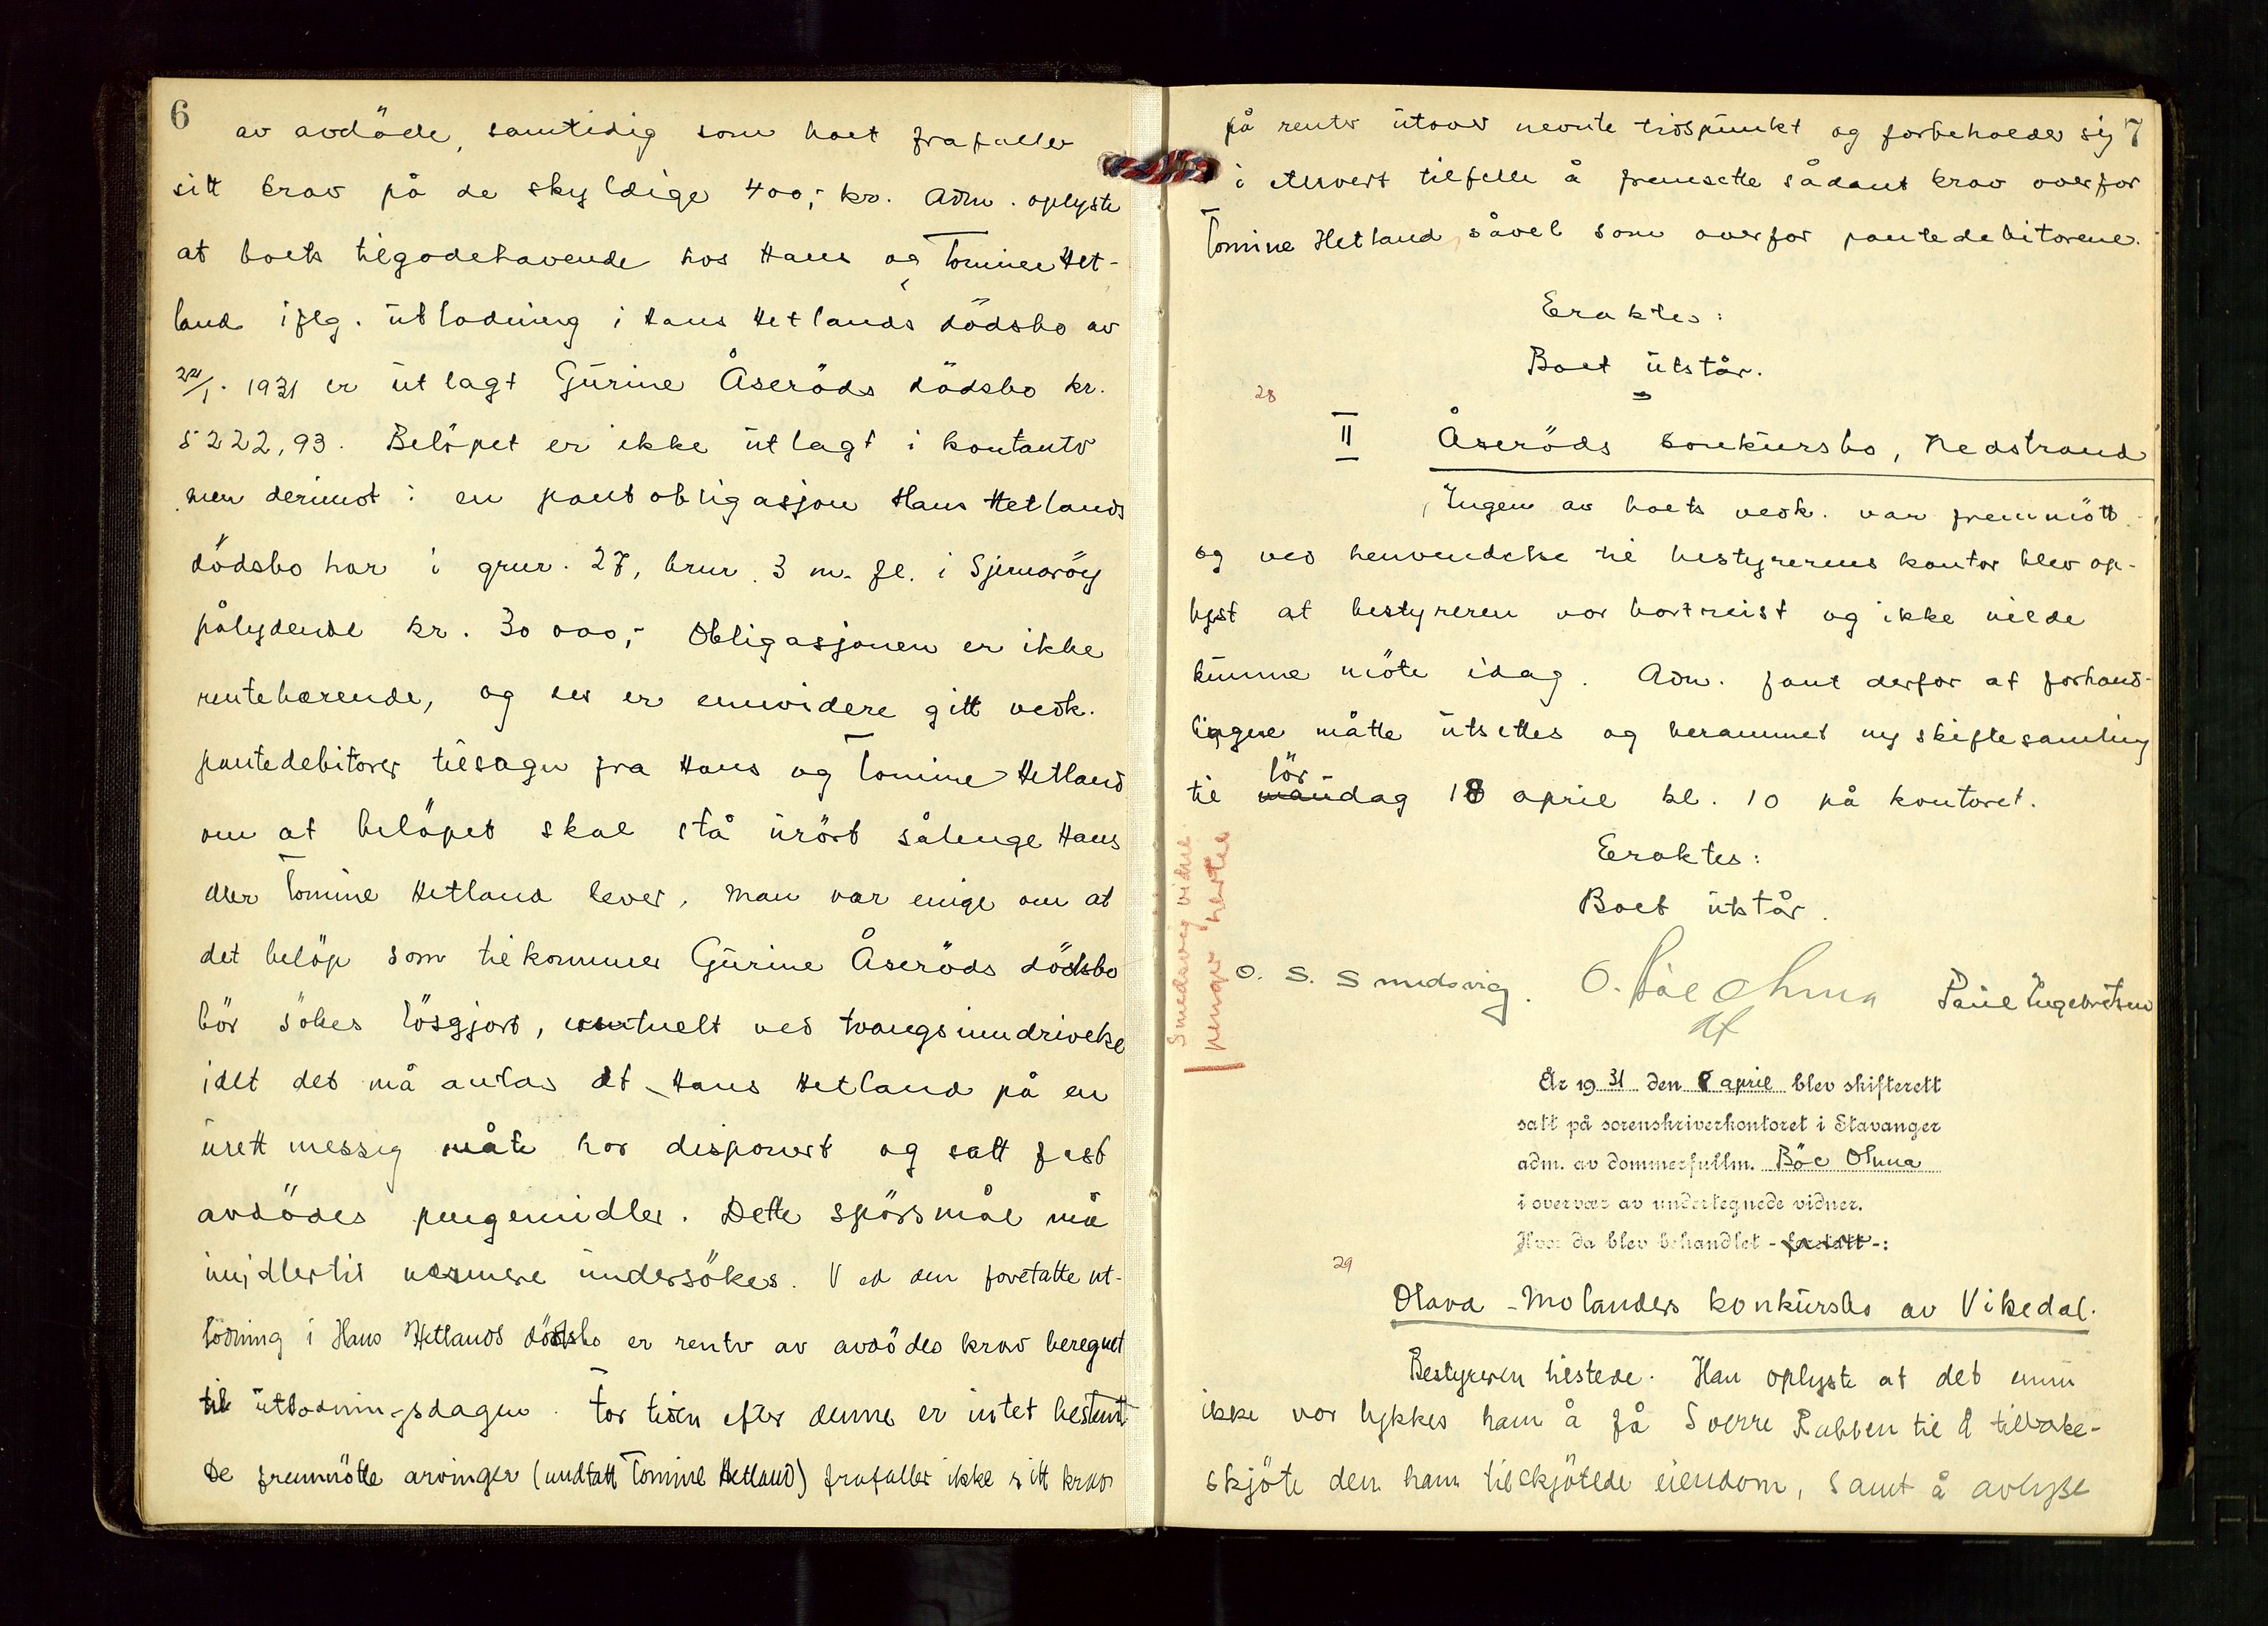 6
av avdöde, samtidig som boet frafaller
sitt krav på de skyldige 400,- kr. Adm. oplyste
at boets tilgodehavende hos Hans og Tomine Het-
land iflg. utlodning i Hans Hetlands dödsbo av
22/1. 1931 er utlagt Gurine Åseröds dödsbo kr.
5222,93. Belöpet er ikke utlagt i kontanter
men derimot i en pantobligasjon Hans Hetlands
dödsbo har i grnr. 27, brnr. 3 m. fl. i Sjernaröy
pålydende kr. 30 000,- Obligasjonen er ikke
rentebærende, og der er enuvidere gitt vedk.
pantedebitorer tilsagn fra Hans og Tomine Hetland
om at belöpet skal stå urört sålenge Hans
eller Tomine Hetland lever. Man var enige om at
det belöp som tilkommer Gurine Åseröds dödsbo
bör sökes lösgjort, eventuelt ved tvangsinndrivelse
idet det må antas at Hans Hetland på en
urettmessig måte har disponert og satt fast
avdödes pengemidler. Dette spörsmål må
imidlertid nærmere undersökes. Ved den foretatte ut-
lodning i Hans Hetlands dödsbo er renter av avdödes krav beregnet
til utlodningsdagen. For tiden efter denne er intet bestemt
De fremmötte arvinger (undtatt Tomine Hetland) frafaller ikke sitt krav
7
på renter utover nevnte tidspunkt og forbeholder sig
i ethvert tilfelle å fremsette sådant krav overfor
Tomine Hetland, såvel som overfor pantedebitorene.
Eraktes:
Boet utstår.
28
II Åseröds konkursbo, Nedstrand
Ingen av boets vedk. var fremmött
og ved henvendelse til bestyrerens kontor blev op-
lyst at bestyreren var bortreist og ikke vilde
kunne möte idag. Adm. fant derfor at forhand-
lingene måtte utsettes og berammet ny skiftesamling
lör
til mandag 18 april kl. 10 på kontoret.
Eraktes:
Boet utstår.
Smedsvig vidne
penger hertil
O. S. Smedsvig. O. Böe Ohma Paul Engebretsen
df
År 1931 den 8 april blev skifterett
satt på sorenskriverkontoret i Stavanger
adm. av dommerfullm. Böe Ohma
i overvær av undertegnede vidner.
Hvor da blev behandlet - foretatt -:
29
Olava Molanders konkursbo av Vikedal.
Bestyreren tilstede. Han oplyste at det ennu
ikke var lykkes ham å få Sverre Rabben til å tilbake-
skjöte den ham tilskjötede eiendom, samt å avlyse